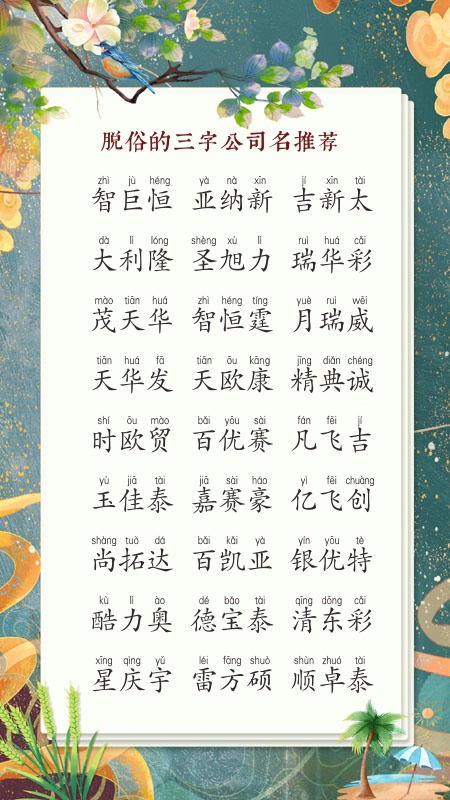 脱俗的三字公司名推荐
zhì jù héng yà nà xīn jí xīn tài
智巨恒 亚纳新 吉新太
dà lì lóng shèng xù lì ruì huá cǎi
大利隆 圣旭力 瑞华彩
mào tiān huá zhì héng tíng yuè ruì wēi
茂天华 智恒霆 月瑞威
tiān huá fā tiān ōu kāng jīng diǎn chéng
天华发 天欧康 精典诚
shí ōu mào bǎi yōu sài fán fēi jí
时欧贸 百优赛 凡飞吉
yù jiā tài jiā sài háo yì fēi chuàng
玉佳泰 嘉赛豪 亿飞创
shàng tuò dá bǎi kǎi yà yín yōu tè
尚拓达 百凯亚 银优特
kù lì ào dé bǎo tài qīng dōng cǎi
酷力奥 德宝泰 清东彩
xīng qìng yǔ léi fāng shuò shùn zhuó tài
星庆宇 雷方硕 顺卓泰